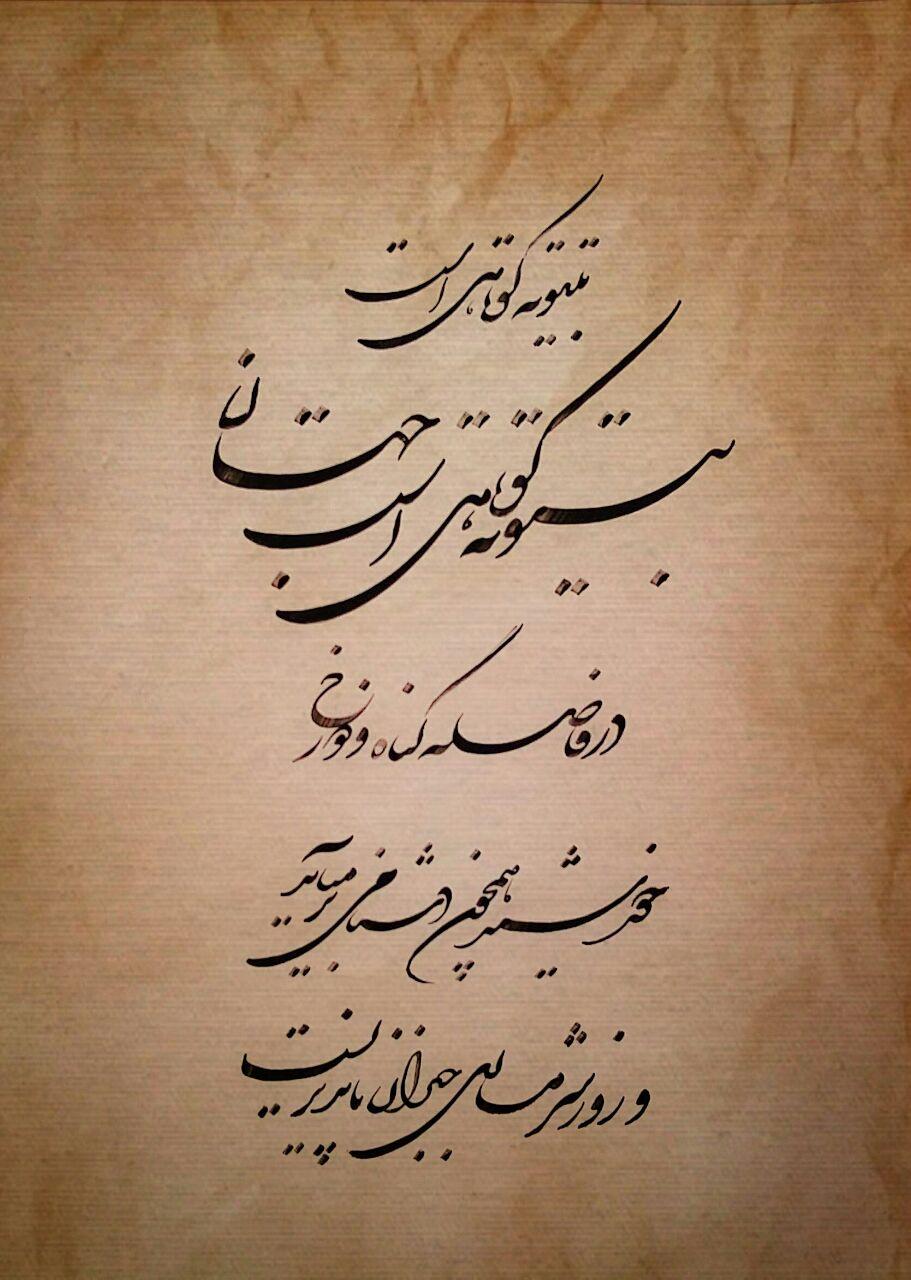 بیتوته کوتاهی است
بیتوته کوتاهی است جهان
در فاصله گناه و دوزخ
خورشید همچون دشنامی برمیاید
و روز شرمساری جبران ناپذیریست